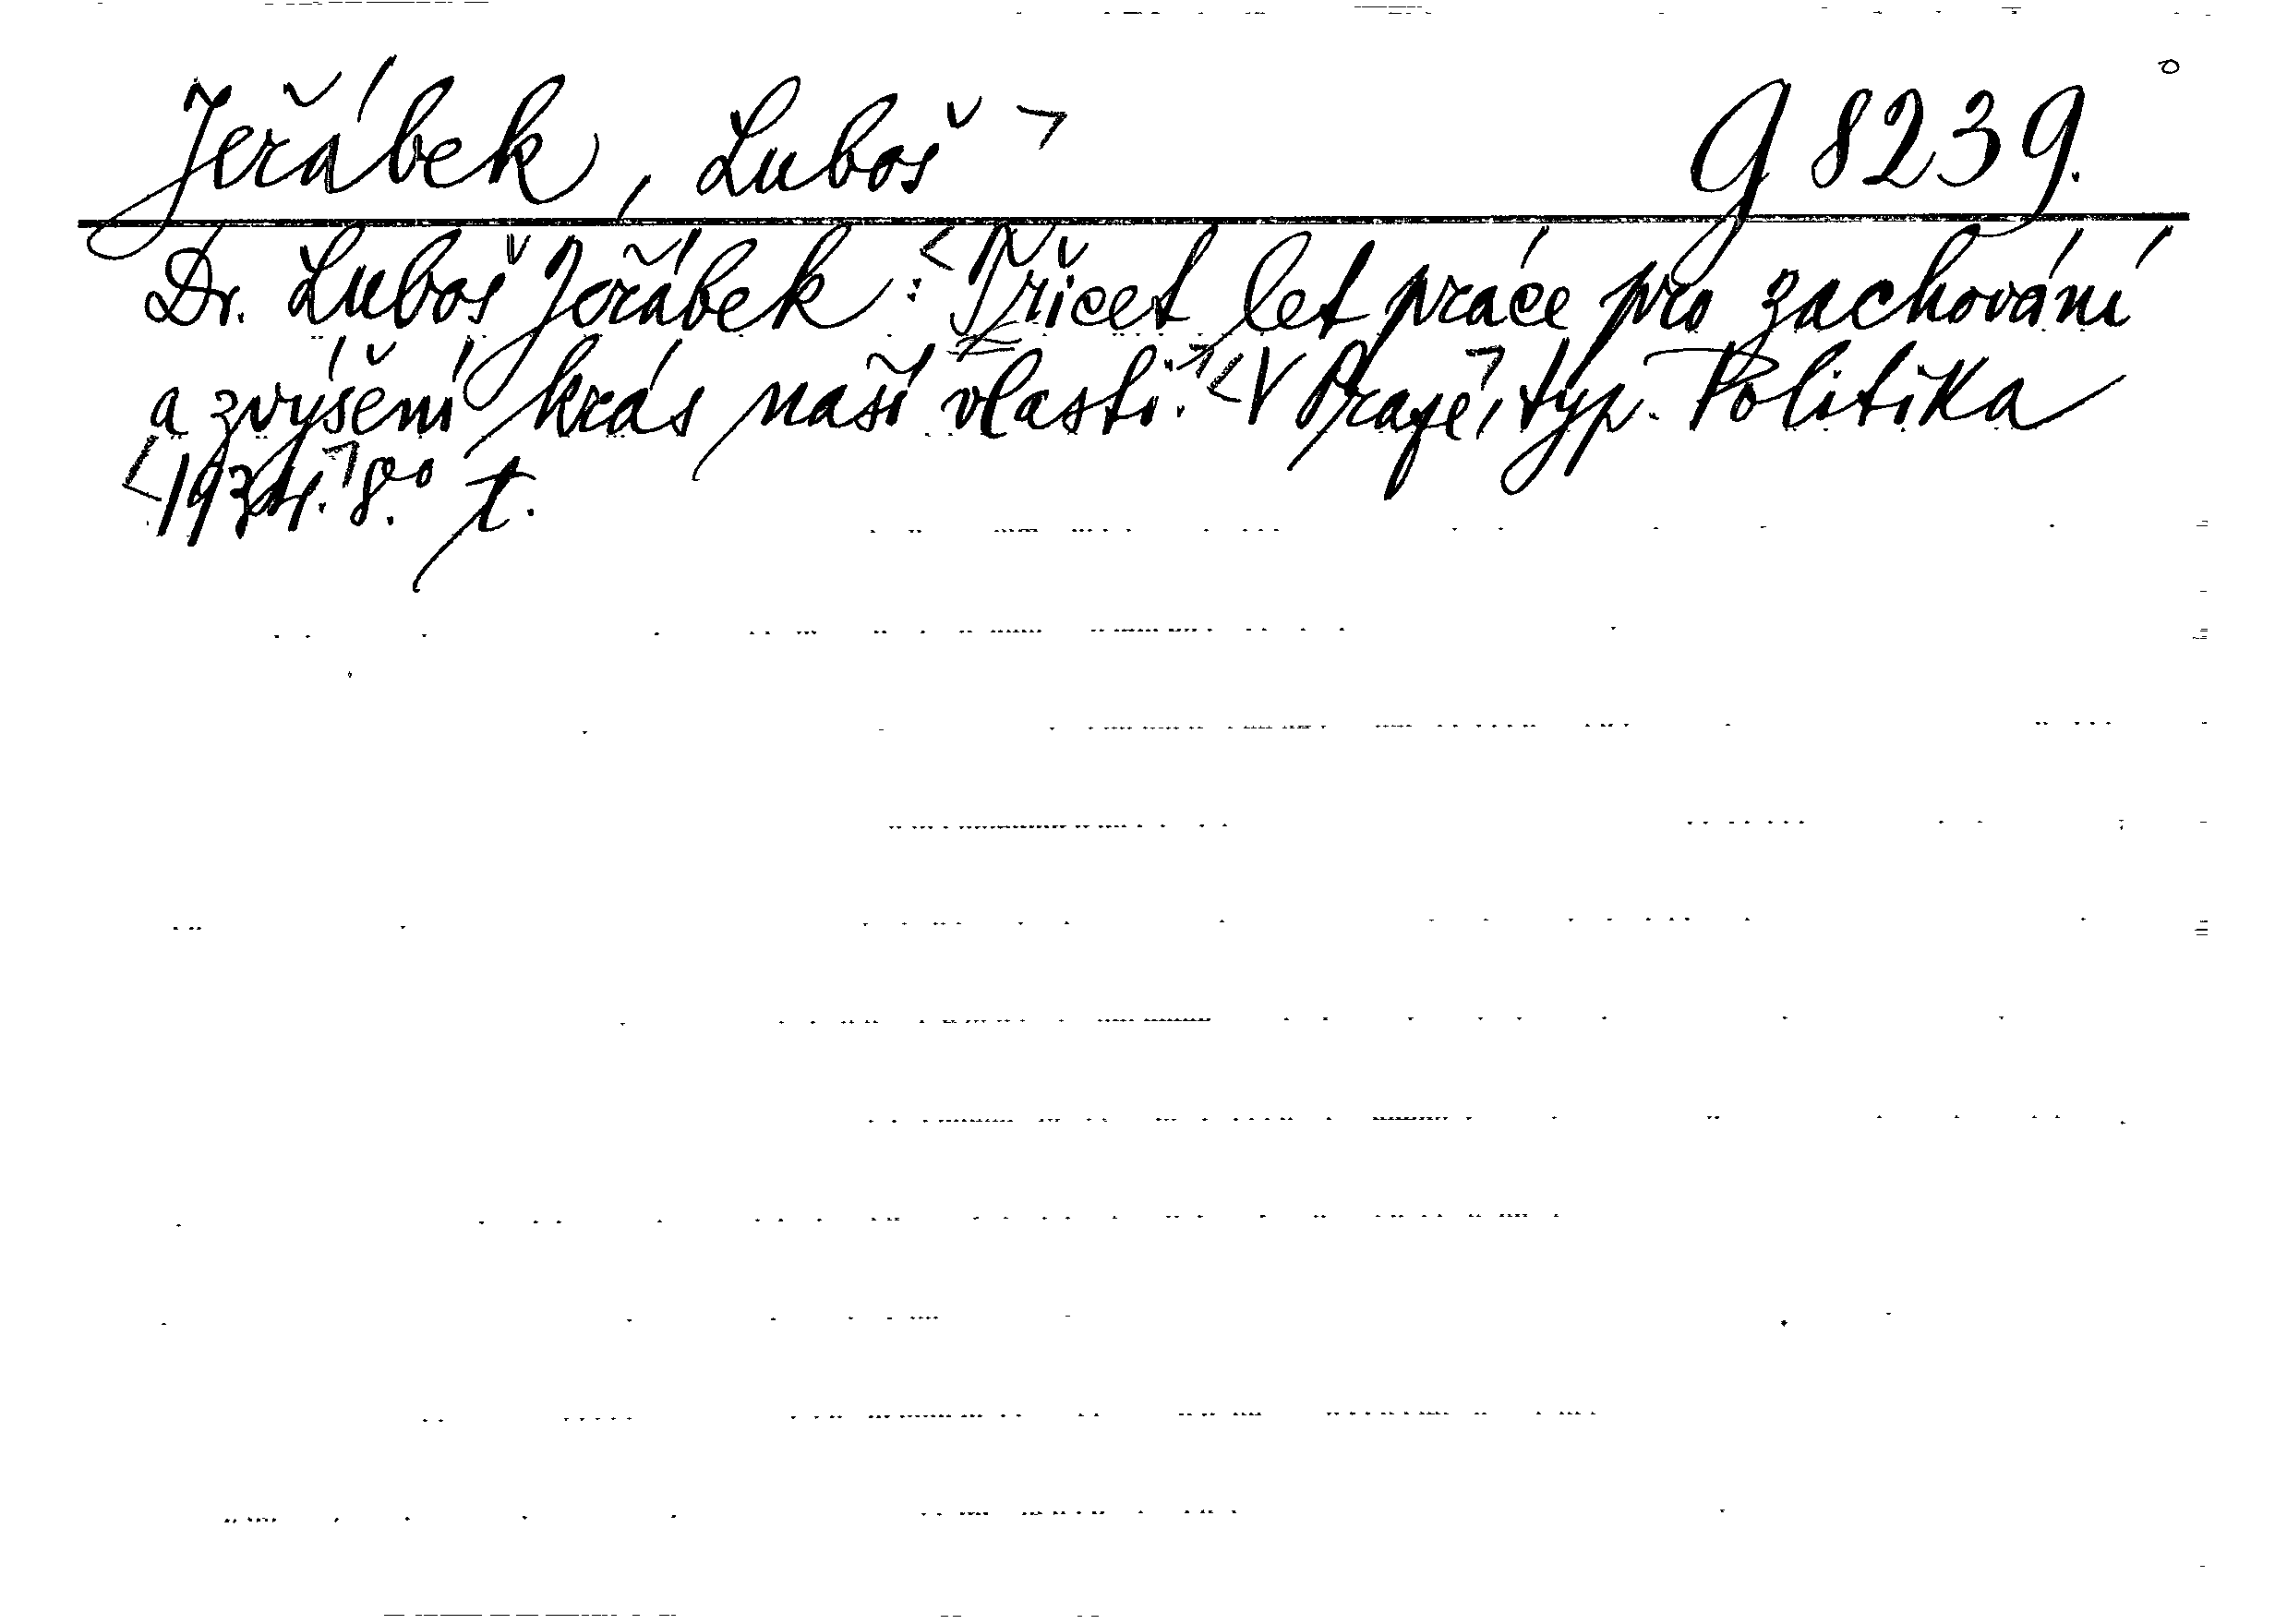 Jeřábek, Luboš g 8239.
Dr. Luboš Jeřábek: Třicet let práce pro zachování
a zvýšení krás naší vlasti. V Praze, typ. Politika
1934. 8.° t.